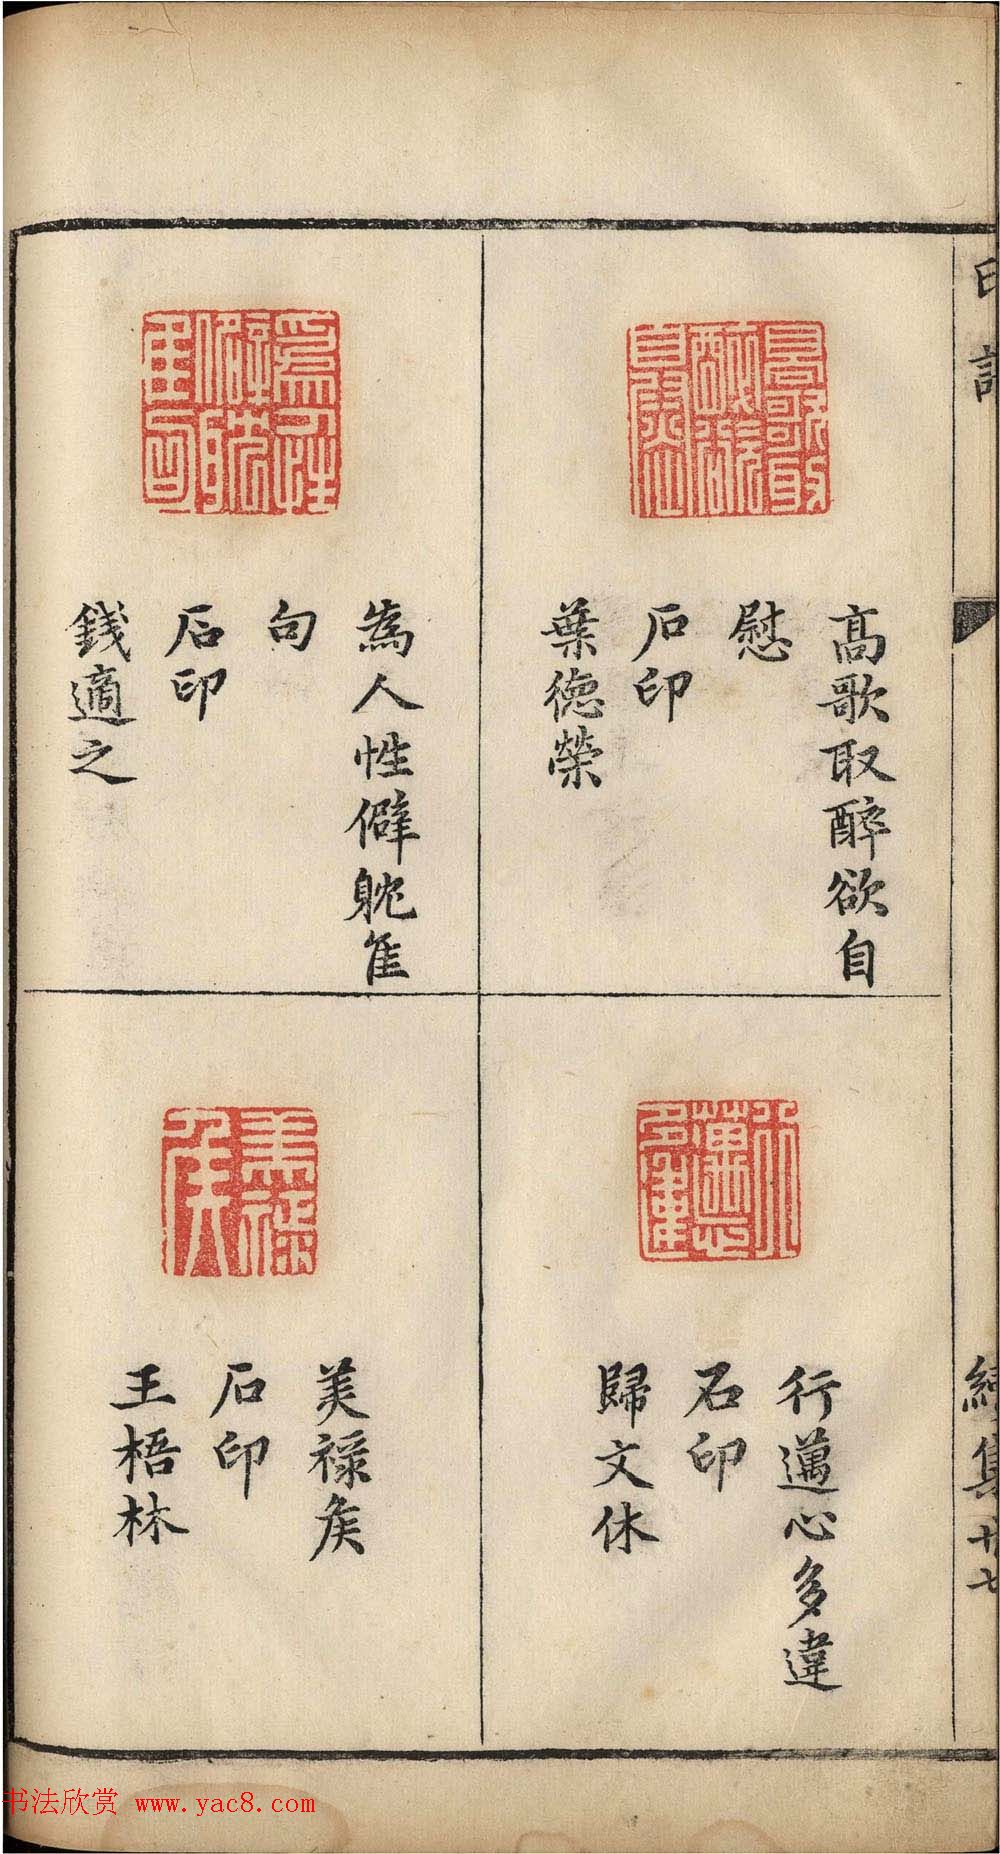 印譜
續集
廿七
高歌取醉欲自
慰
石印
葉德榮
為人性僻躭隹
句
石印
錢適之
行邁心多違
石印
歸文休
美禄矦
石印
王梧林
书法欣赏 www.yac8.com